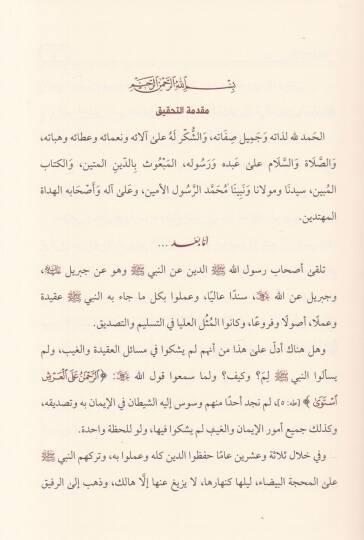 بسم الله الرحمن الرحيم
مقدمة التحقيق
الحَمد لله لذاته وَجَمِيل صِفَاته، وَالشُّكْر لَهُ علىٰ آلائه ونعمائه وعطائه وهباته،
وَالصَّلَاة وَالسَّلَام علىٰ عَبده وَرَسُوله، المَبْعُوث بِالدِّينِ المتين، والكتاب
المُبين، سيدنَا ومولانا وَنَبِينَا مُحَمَّد الرَّسُول الأمين، وَعَلىٰ آله وَأَصْحَابه الهداة
المهتدين.
أما بعد ...
تلقىٰ أصحاب رسول الله ﷺ الدين عن النبي ﷺ وهو عن جبريل ،
وجبريل عن الله ، سندًا عاليًا، وعملوا بكل ما جاء به النبي ﷺ عقيدة
وعملًا، أصولًا وفروعًا، وكانوا المُثُل العليا في التسليم والتصديق.
وهل هناك أدلّ علىٰ هذا من أنهم لم يشكوا في مسائل العقيدة والغيب، ولم
يسألوا النبي ﷺ لِمَ؟ وكيف؟ ولما سمعوا قول الله : ﴿الرَّحْمَٰنُ عَلَى الْعَرْشِ
اسْتَوَىٰ﴾ [طه: ٥]، لم نجد أحدًا منهم وسوس إليه الشيطان في الإيمان به وتصديقه،
وكذلك جميع أمور الإيمان والغيب لم يشكوا فيها، ولو للحظة واحدة.
وفي خلال ثلاثة وعشرين عامًا حفظوا الدين كله وعملوا به، وتركهم النبي ﷺ
علىٰ المحجة البيضاء، ليلها كنهارها، لا يزيغ عنها إلَّا هالك، وذهب إلىٰ الرفيق